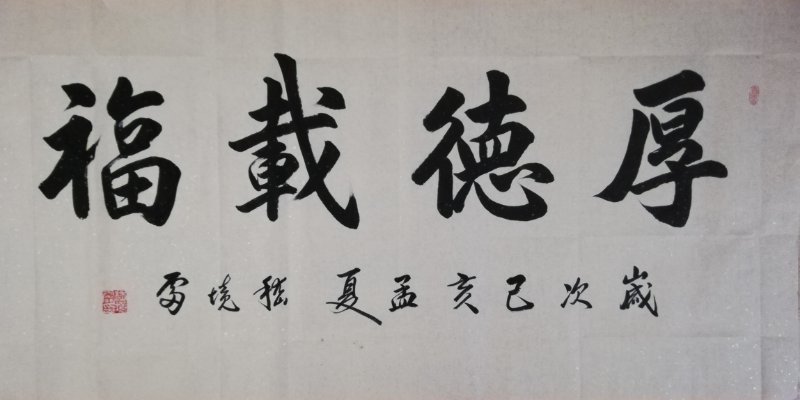 厚德載福
歲次己亥孟夏 境雷